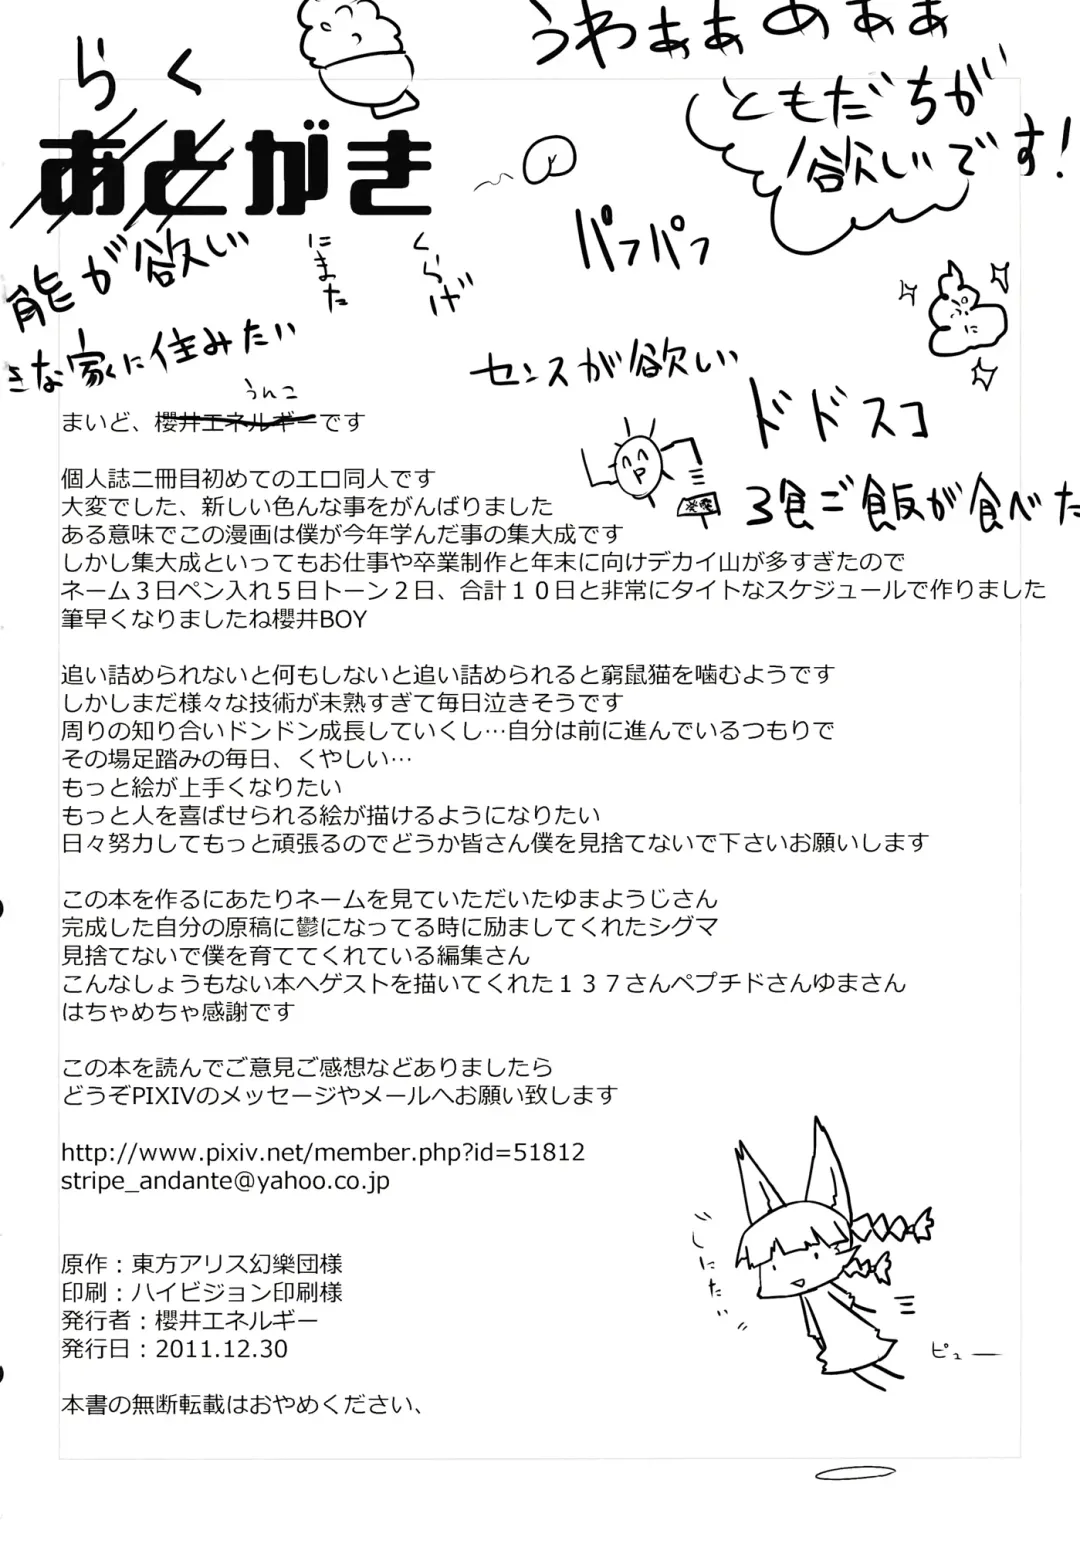 うわぁぁぁぁぁぁ
らく
ともだちが
欲しいです!
あとがき
パフパフ
能が欲しい
にまた
くらげ
きな家に住みたい
センスが欲しい
ドドスコ
3食ご飯が食べた
うんこ
まいど、櫻井エネルギーです
個人誌二冊目初めてのエロ同人です
大変でした、新しい色んな事をがんばりました
ある意味でこの漫画は僕が今年学んだ事の集大成です
しかし集大成といってもお仕事や卒業制作と年末に向けデカイ山が多すぎたので
ネーム３日ペン入れ５日トーン２日、合計１０日と非常にタイトなスケジュールで作りました
筆早くなりましたね櫻井BOY
追い詰められないと何もしないと追い詰められると窮鼠猫を噛むようです
しかしまだ様々な技術が未熟すぎて毎日泣きそうです
周りの知り合いドンドン成長していくし…自分は前に進んでいるつもりで
その場足踏みの毎日、くやしい…
もっと絵が上手くなりたい
もっと人を喜ばせられる絵が描けるようになりたい
日々努力してもっと頑張るのでどうか皆さん僕を見捨てないで下さいお願いします
この本を作るにあたりネームを見ていただいたゆまようじさん
完成した自分の原稿に鬱になってる時に励ましてくれたシグマ
見捨てないで僕を育ててくれている編集さん
こんなしょうもない本へゲストを描いてくれた１３７さんペプチドさんゆまさん
はちゃめちゃ感謝です
この本を読んでご意見ご感想などありましたら
どうぞPIXIVのメッセージやメールへお願い致します
http://www.pixiv.net/member.php?id=51812
stripe_andante@yahoo.co.jp
じにたい
ピュー
原作：東方アリス幻樂団様
印刷：ハイビジョン印刷様
発行者：櫻井エネルギー
発行日：2011.12.30
本書の無断転載はおやめください、